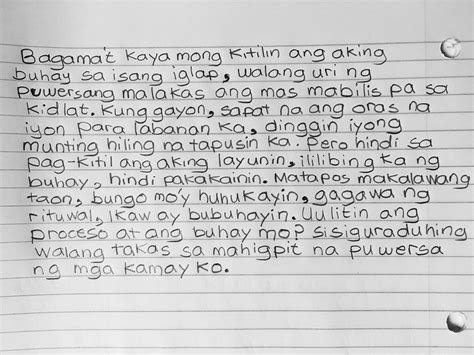 Bagama't kaya mong kitilin ang aking
buhay sa isang iglap, walang uri ng
puwersang malakas ang mas mabilis pa sa
kidlat. Kung gayon, sapat na ang oras na
iyon para labanan ka, dinggin iyong
munting hiling na tapusin ka. Pero hindi sa
pag-kitil ang aking layunin, ililibing ka ng
buhay, hindi pakakainin. Matapos makalawang
taon, bungo mo'y huhukayin, gagawa ng
rituwal, ikaw ay bubuhayin. Uulitin ang
proseso at ang buhay mo? sisiguraduhing
walang takas sa mahigpit na puwersa
ng mga kamay ko.